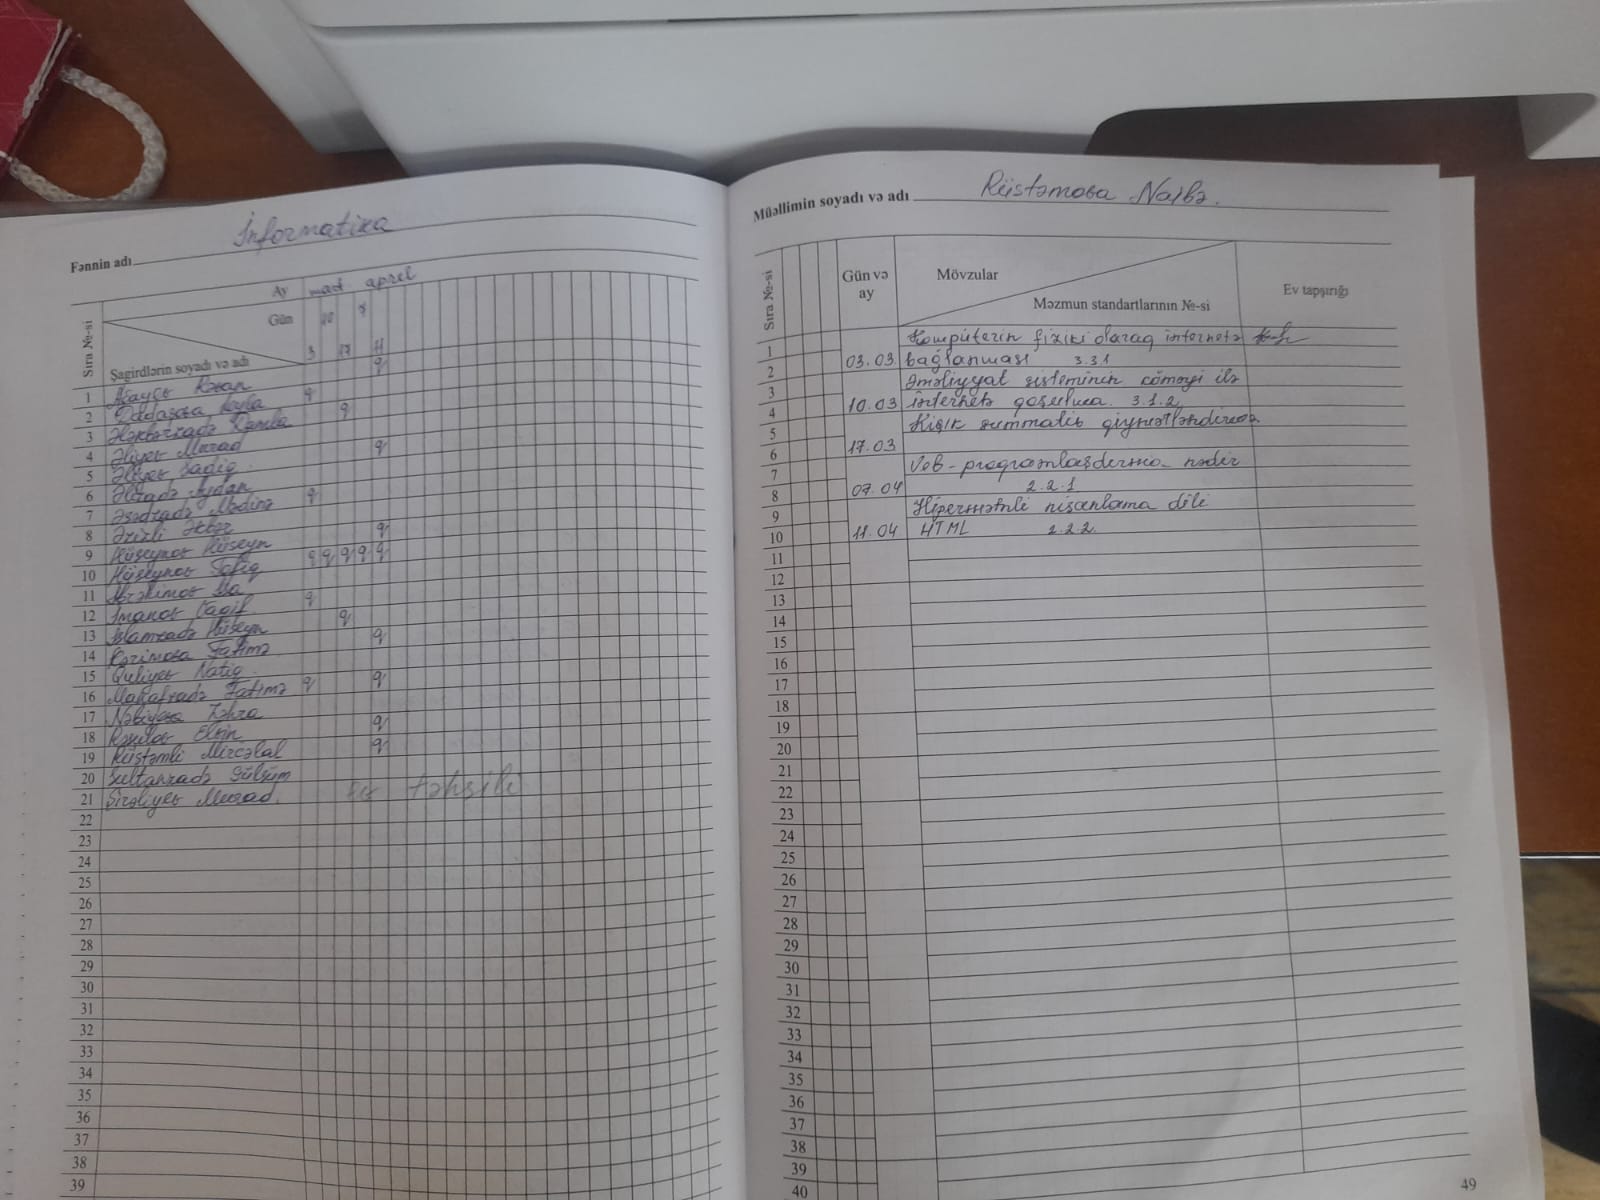 Fənnin adı İnformatika
Ay mart aprel
Gün 3 10 17 8 11
Sıra №-si
Şagirdlərin soyadı və adı
1
2
3
4 Əliyev Murad
5 Əliyev Sadiq
6 Əlizadə Aydan
7 Əsədzadə Mədinə
8 Əzizli Əkbər q
9 Hüseynov Hüseyn q q q q q
10 Hüseynov Tofiq
11 İbrahimov İsa q
12 İmanov Vaqif q
13 İslamzadə Hüseyn q
14 Kərimova Fatimə
15 Quliyev Natiq q q
16 Fatimə
17 Nəbiyeva Zəhra q
18 Rəsulov Elvin q
19 Rüstəmli Mircəlal
20 Sultanzadə Gülsüm
21 Şirəliyev Murad ev təhsili
22
23
24
25
26
27
28
29
30
31
32
33
34
35
36
37
38
39
Müəllimin soyadı və adı Rüstəmova
Sıra №-si
Gün və ay
Mövzular
Məzmun standartlarının №-si
Ev tapşırığı
1 Kompüterin fiziki olaraq internetə
2 03.03 bağlanması 3.31
3 Əməliyyat sisteminin köməyi ilə
4 10.03 internetə qoşulma. 3.1.2
5 Kiçik summativ qiymətləndirmə
6 17.03
7 Veb-proqramlaşdırma nədir
8 07.04 2.2.1
9 Hipermətnli nişanlama dili
10 11.04 HTML 2.2.2.
11
12
13
14
15
16
17
18
19
20
21
22
23
24
25
26
27
28
29
30
31
32
33
34
35
36
37
38
39
40
49